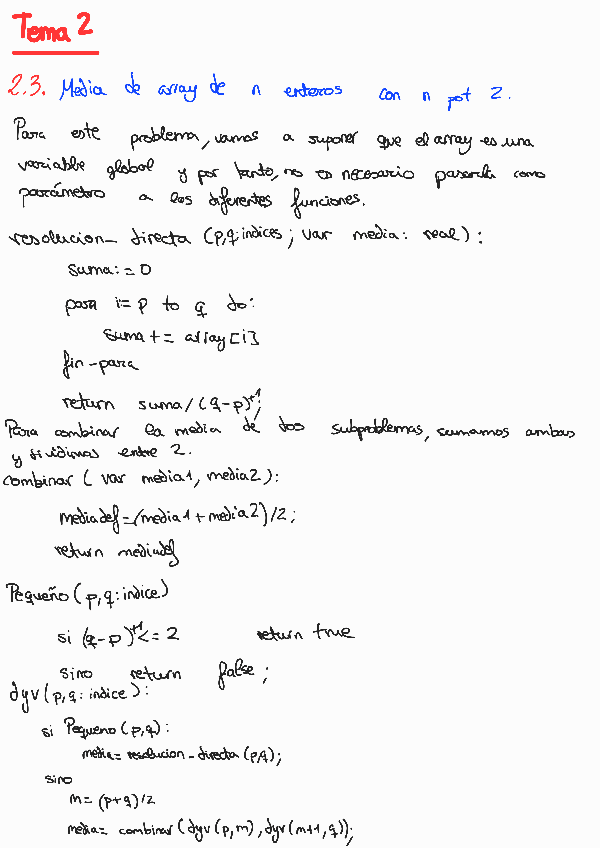 Tema 2
2.3. Media de array de n enteros con n pot 2.
Para este problema, vamos a suponer que el array es una
variable global y por tanto, no es necesario pasarla como
parámetro a las diferentes funciones.
resolucion_directa (p,q:indices; var media: real):
suma:=0
para i=p to q do:
suma+= array[i]
fin-para
return suma/(q-p)+1;
Para combinar la media de dos subproblemas, sumamos ambas
y dividimos entre 2.
combinar (var media1, media2):
mediadef=(media1+media2)/2;
return mediadef
Pequeño(p,q:indice)
si (q-p)+1<=2 return true
sino return false;
dyv(p,q:indice):
si Pequeno(p,q):
media=resolucion-directa(p,q);
sino
m=(p+q)/2
media= combinar(dyv(p,m),dyv(m+1,q));